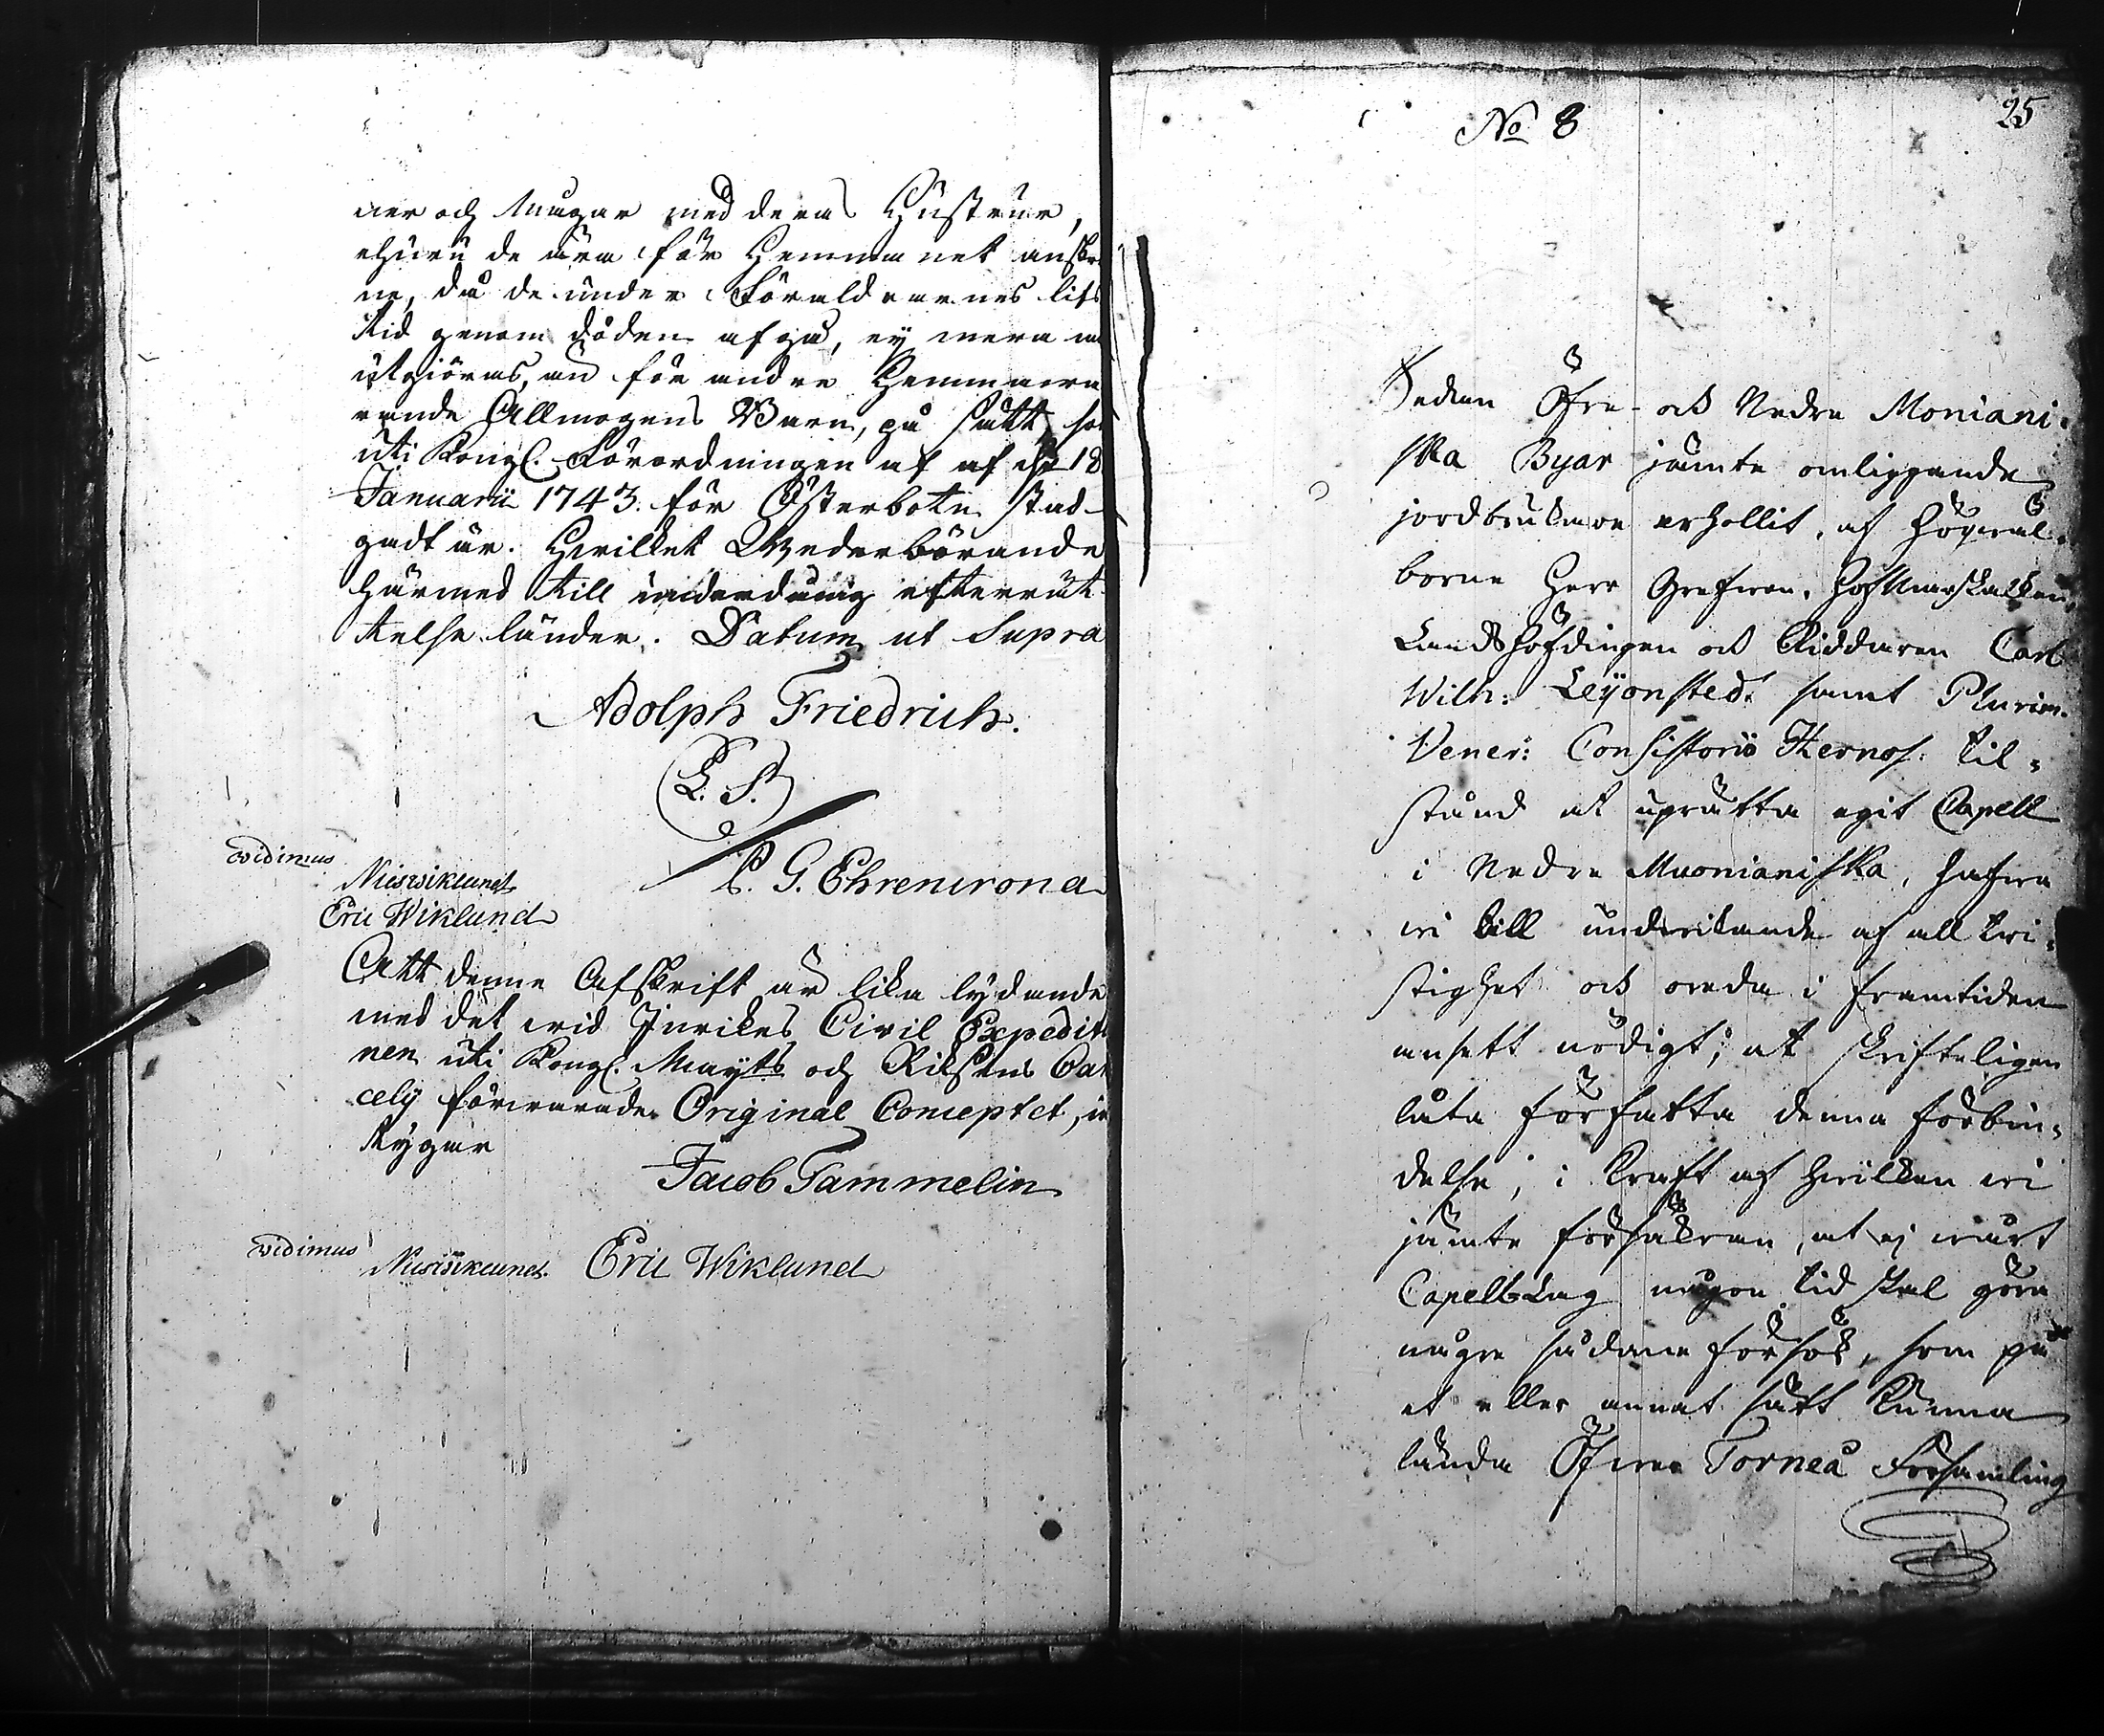 ner och Mågar med deras Hustrur,
ehuru de äro för Hemmanet anskr
ne, då de under Föräldrarnes lifs
tid genom döden afgå, ey mera
utgiöras, än för andre Hemmawa
rande Allmogens Barn, på sätt so
uti Kongl. Förordningen af af d. 18
Januarii 1743. för Österbotn stad-
gadt är. Hwilket Wederbörande
härmed till underdånig efterrät
telse länder. Datum ut Supra
Adolph Friedrich.
L. S.
C. G. Ehrencrona
vidimus
Eric Wiklund
Att denne Afskrift är lika lydande
med det wid Inrikes Civil Expeditio
nen uti Kongl. Mayts och Riksens Can
cely förwarade Original Conceptet, in
tygar
Jacob Tammelin
vidimus
Eric Wiklund
No 8
25
Sedan Öfre- och Nedre Moniani-
ska Byar jämte omliggande
jordbrukare erhollit, af Högwäl-
borne Herr Grefwen, HofMarskalken,
Landshöfdingen och Riddaren Carl
Wilh: Leÿonsted. samt Plurim.
Vener: Consistorio Hernos. til-
stånd at uprätta egit Capell
i Nedre Muonianiska, hafwa
wi till undwikande af all twi-
stighet och oreda i framtiden
ansett nödigt; at skrifteligen
låta författa denna förbin-
delse, i kraft af hwilken wi
jämte försäkran, at ej wårt
CapellLag någon tid skal göra
någre sådane försök, som på
et eller annat sätt kunna
lända Öfwer Torneå Församling